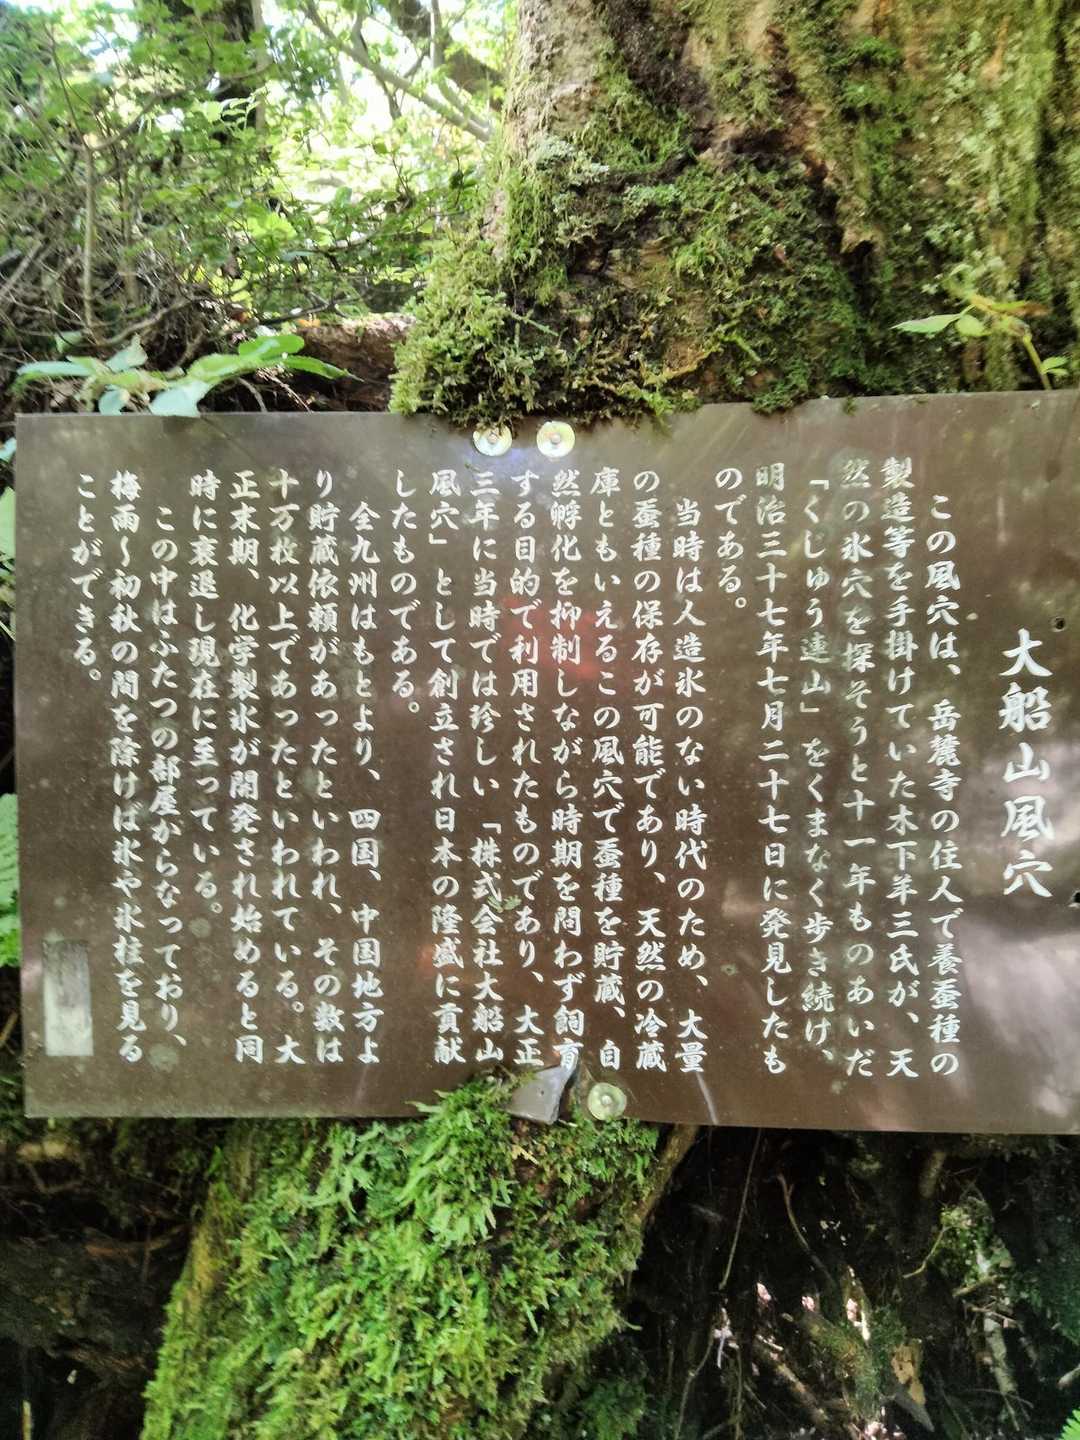 大船山風穴
この風穴は、岳麓寺の住人で養蚕種の
製造等を手掛けていた木下羊三氏が、天
然の氷穴を探そうと十一年ものあいだ
「くじゅう連山」をくまなく歩き続け、
明治三十七年七月二十七日に発見したも
のである。
当時は人造氷のない時代のため、大量
の蚕種の保存が可能であり、天然の冷蔵
庫ともいえるこの風穴で蚕種を貯蔵、自
然孵化を抑制しながら時期を問わず飼育
する目的で利用されたものであり、大正
三年に当時では珍しい「株式会社大船山
風穴」として創立され日本の隆盛に貢献
したものである。
全九州はもとより、四国、中国地方よ
り貯蔵依頼があったといわれ、その数は
十万枚以上であったといわれている。大
正末期、化学製氷が開発され始めると同
時に衰退し現在に至っている。
この中はふたつの部屋からなっており、
梅雨〜初秋の間を除けば氷や氷柱を見る
ことができる。